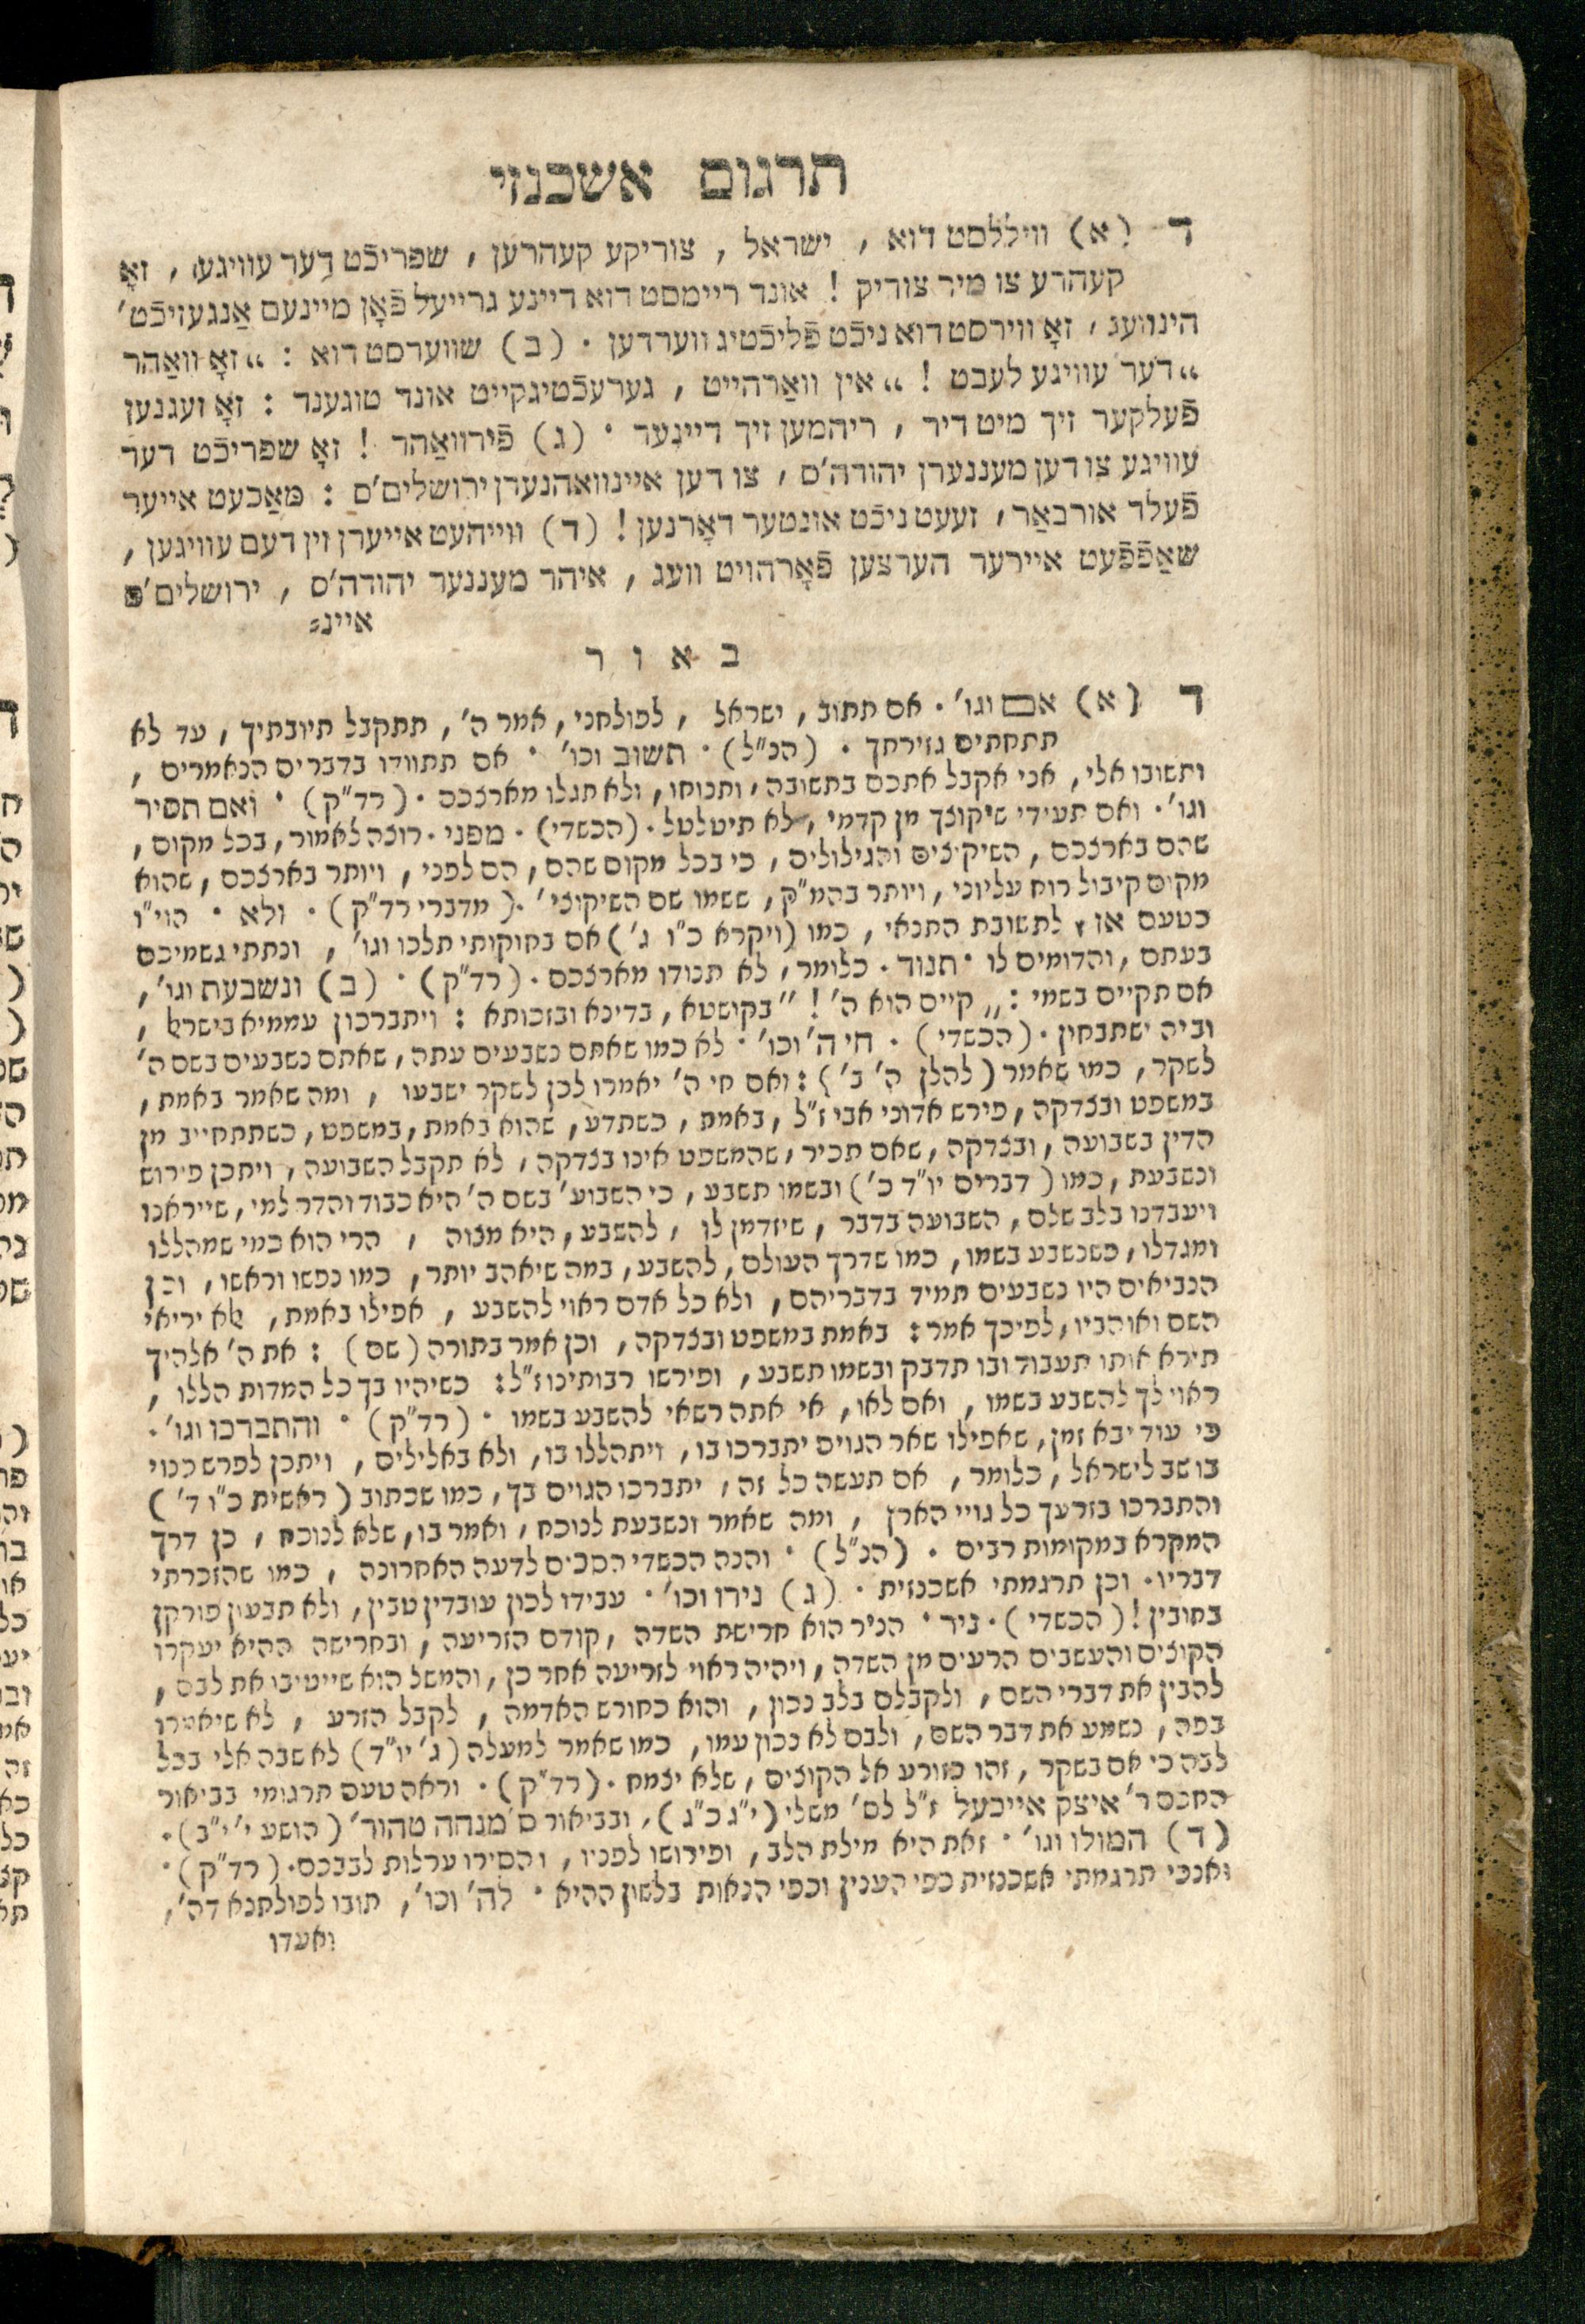 תרגום אשכנזי
ד (א) וויללסט דוא , ישראל , צוריקע קעהרען , שפריכֿט דער עוויגע , זאָ
קעהרע צו מיר צוריק ! אונד ריימסט דוא דיינע גרייעל פֿאָן מיינעם אַנגעזיכֿט'
הינוועג , זאָ ווירסט דוא ניכֿט פֿליכֿטיג ווערדען . (ב) שווערסט דוא : ,,זאָ וואַהר
,,דער עוויגע לעבט ! ,,אין וואַרהייט , גערעכֿטיגקייט אונד טוגענד : זאָ זעגנען
פֿעלקער זיך מיט דיר , ריהמען זיך דיינער . (ג) פֿירוואַהר ! זאָ שפריכֿט דער
עוויגע צו דען מעננערן יהודה'ס , צו דען איינוואהנערן ירושלים'ס : מאַכעט אייער
פֿעלד אורבאַר , זעעט ניכֿט אונטער דאָרנען ! (ד) ווייהעט אייערן זין דעם עוויגען ,
שאַפֿפֿעט איירער הערצען פֿאָרהויט וועג , איהר מעננער יהודה'ס , ירושלים'ס
איינ=
באור
ד (א) אם וגו' . אם תתוב , ישראל , לפולחני , אמר ה' , תתקבל תיובתיך , עד לא
תתחתים גזירתך . (הנ"ל) . תשוב וכו' . אם תתוודו בדברים הנאמרים ,
ותשובו אלי , אני אקבל אתכם בתשובה , ותנוחו , ולא תגלו מארצכם . (רד"ק) . ואם תסיר
וגו' . ואם תעידי שיקוצך מן קדמי , לא תיטלטל . (הכשדי) . מפני . רוצה לאמור , בכל מקום ,
שהם בארצכם , השיקוצים והגילולים , כי בכל מקום שהם , הם לפני , ויותר בארצכם , שהוא
מקום קיבול רוח עליוני , ויותר בהמ"ק , ששמו שם השיקוצי' . (מדברי רד"ק) . ולא . הוי"ו
כטעם אז , לתשובת התנאי , כמו (ויקרא כ"ו ג') אם בחוקותי תלכו וגו' , ונתתי גשמיכם
בעתם , והדומים לו . תנוד . כלומר , לא תנודו מארצכם . (רד"ק) . (ב) ונשבעת וגו' ,
אם תקיים בשמי : ,, קיים הוא ה' ! " בקושטא , בדינא ובזכותא : ויתברכון עממיא בישראל ,
וביה ישתבחין . (הכשדי) . חי ה' וכו' . לא כמו שאתם נשבעים עתה , שאתם נשבעים בשם ה'
לשקר , כמו שאמר (להלן ה' ב') : ואם חי ה' יאמרו לכן לשקר ישבעו , ומה שאמר באמת ,
במשפט ובצדקה , פירש אדוני אבי ז"ל , באמת , כשתדע , שהוא באמת , במשפט , כשתתחייב מן
הדין בשבועה , ובצדקה , שאם תכיר , שהמשפט אינו בצדקה , לא תקבל השבועה , ויתכן פירוש
ונשבעת , כמו (דברים יו"ד כ') ובשמו תשבע , כי השבוע' בשם ה' היא כבוד והדר למי , שייראנו
ויעבדנו בלב שלם , השבועה בדבר , שיזדמן לו , להשבע , היא מצוה , הרי הוא כמי שמהללו
ומגדלו , כשנשבע בשמו , כמו שדרך העולם , להשבע , במה שיאהב יותר , כמו נפשו וראשו , וכן
הנביאים היו נשבעים תמיד בדבריהם , ולא כל אדם ראוי להשבע , אפילו באמת , אלא יריאי
השם ואוהביו , לפיכך אמר : באמת במשפט ובצדקה , וכן אמר בתורה (שם) : את ה' אלהיך
תירא אותו תעבוד ובו תדבק ובשמו תשבע , ופירשו רבותינו ז"ל : כשיהיו בך כל המדות הללו ,
ראוי לך להשבע בשמו , ואם לאו , אי אתה רשאי להשבע בשמו . (רד"ק) . והתברכו וגו' .
כי עוד יבא זמן , שאפילו שאר הגוים יתברכו בו , ויתהללו בו , ולא באלילים , ויתכן לפרש כנוי
בו שב לישראל , כלומר , אם תעשה כל זה , יתברכו הגוים בך , כמו שכתוב (ראשית כ"ו ד')
והתברכו בזרעך כל גויי הארץ , ומה שאמר ונשבעת לנוכח , ואמר בו , שלא לנוכח , כן דרך
המקרא במקומות רבים . (הנ"ל) . והנה הכשדי הסכים לדעה האחרונה , כמו שהזכרתי
דבריו . וכן תרגמתי אשכנזית . (ג) נירו וכו' . עבידו לכון עובדין טבין , ולא תבעון פורקן
בחובין ! (הכשדי) . ניר . הניר הוא חרישת השדה , קודם הזריעה , ובחרישה ההיא יעקרו
הקוצים והעשבים הרעים מן השדה , ויהיה ראוי לזריעה אחר כן , והמשל הוא שייטיבו את לבם ,
להבין את דברי השם , ולקבלם בלב נכון , והוא כחורש האדמה , לקבל הזרע , לא שיאמרו
בפה , נשמע את דבר השם , ולבם לא נכון עמו , כמו שאמר למעלה (ג' יו"ד) לא שבה אלי בכל
לבה כי אם בשקר , זהו כזורע אל הקוצים , שלא יצמח . (רד"ק) . וראה טעם תרגומי בביאור
החכם ר' איצק אייכעל ז"ל לס' משלי (י"ג כ"ג) , ובביאור ס' מנחה טהור' (הושע י' י"ב) .
(ד) המולו וגו' . זאת היא מילת הלב , ופירושו לפניו , והסירו ערלות לבבכם . (רד"ק) .
ואנכי תרגמתי אשכנזית כפי הענין וכפי הנאות בלשון ההיא . לה' וכו' , תובו לפולחנא דה' ,
ואעדו